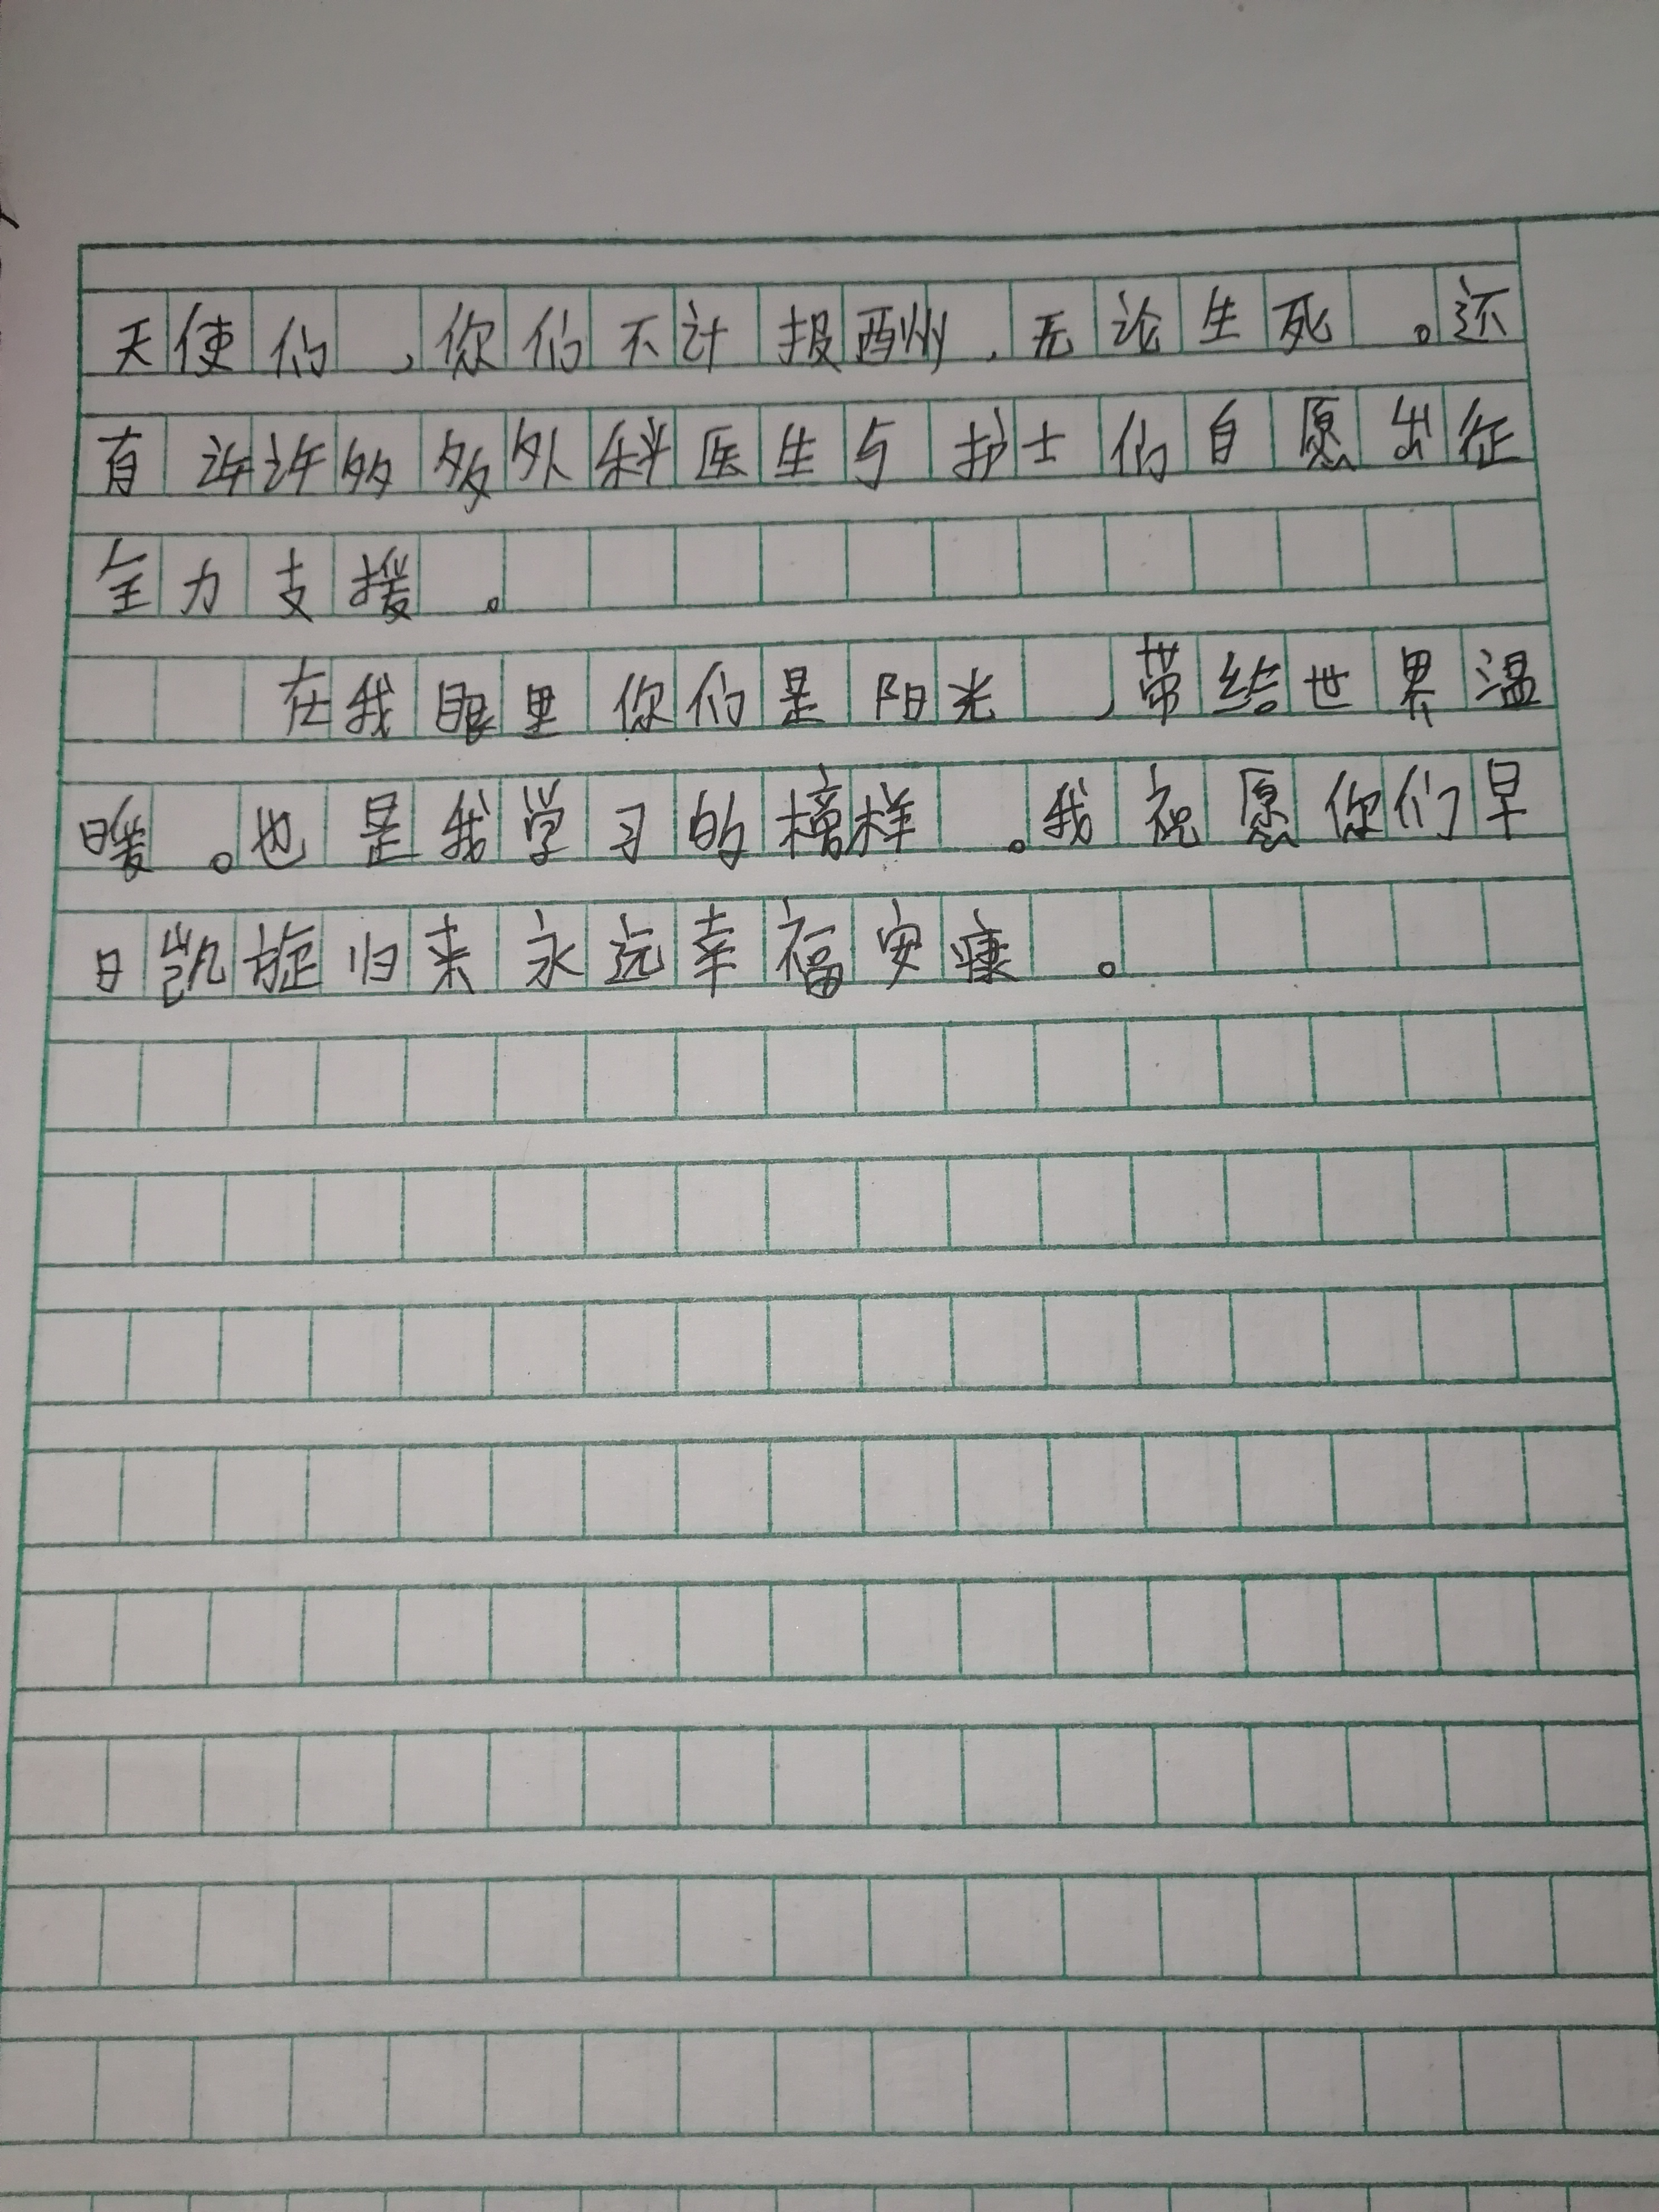 天使们，你们不计报酬，无论生死。还
有许许多多外科医生与护士们自愿出征
全力支援。
在我眼里你们是阳光，带给世界温
暖。也是我学习的榜样。我祝愿你们早
日凯旋归来永远幸福安康。